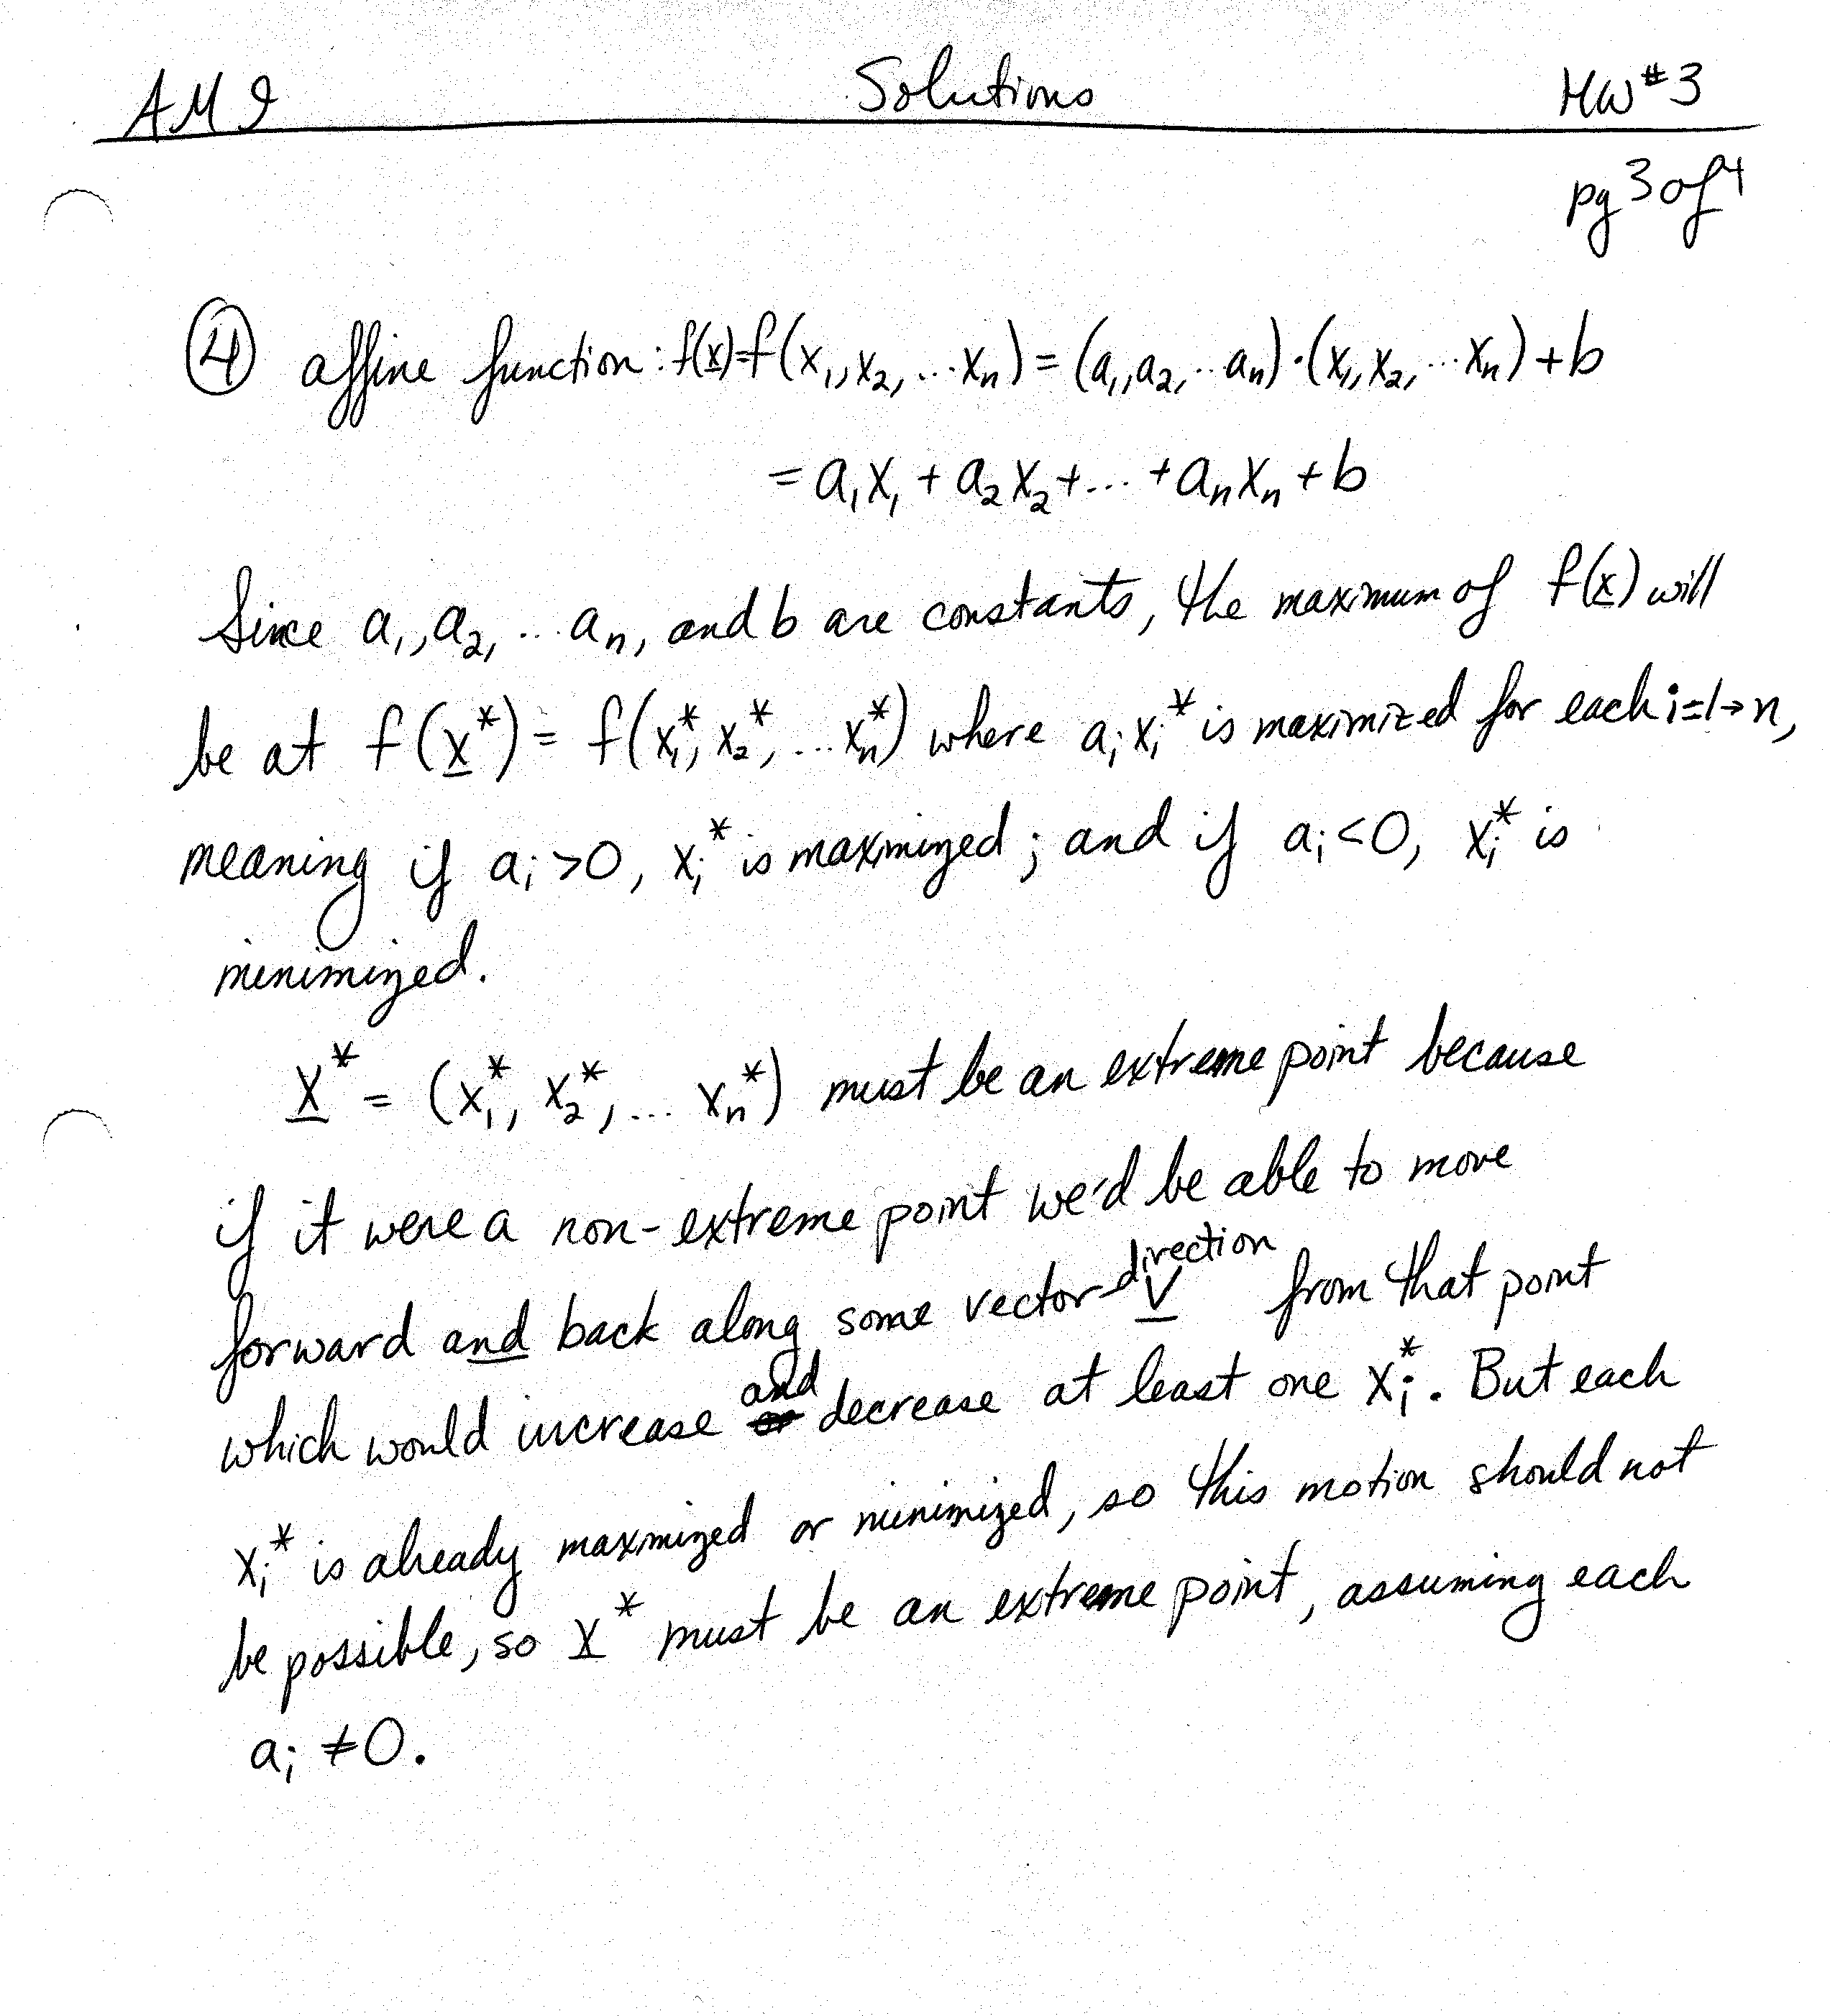 AM 9 Solutions HW #3
pg 3 of 4
④ affine function: f(x̲)=f(x₁, x₂, ... xₙ) = (a₁, a₂, ... aₙ)·(x₁, x₂, ... xₙ) + b
= a₁x₁ + a₂x₂ + ... + aₙxₙ + b
Since a₁, a₂, ... aₙ, and b are constants, the maximum of f(x̲) will
be at f(x̲*) = f(x₁*, x₂*, ... xₙ*) where aᵢxᵢ* is maximized for each i=1→n,
meaning if aᵢ>0, xᵢ* is maximized; and if aᵢ<0, xᵢ* is
minimized.
x̲* = (x₁*, x₂*, ... xₙ*) must be an extreme point because
if it were a non-extreme point we'd be able to move
forward and back along some vector-direction v̲ from that point
which would increase and decrease at least one xᵢ*. But each
xᵢ* is already maximized or minimized, so this motion should not
be possible, so x̲* must be an extreme point, assuming each
aᵢ ≠ 0.